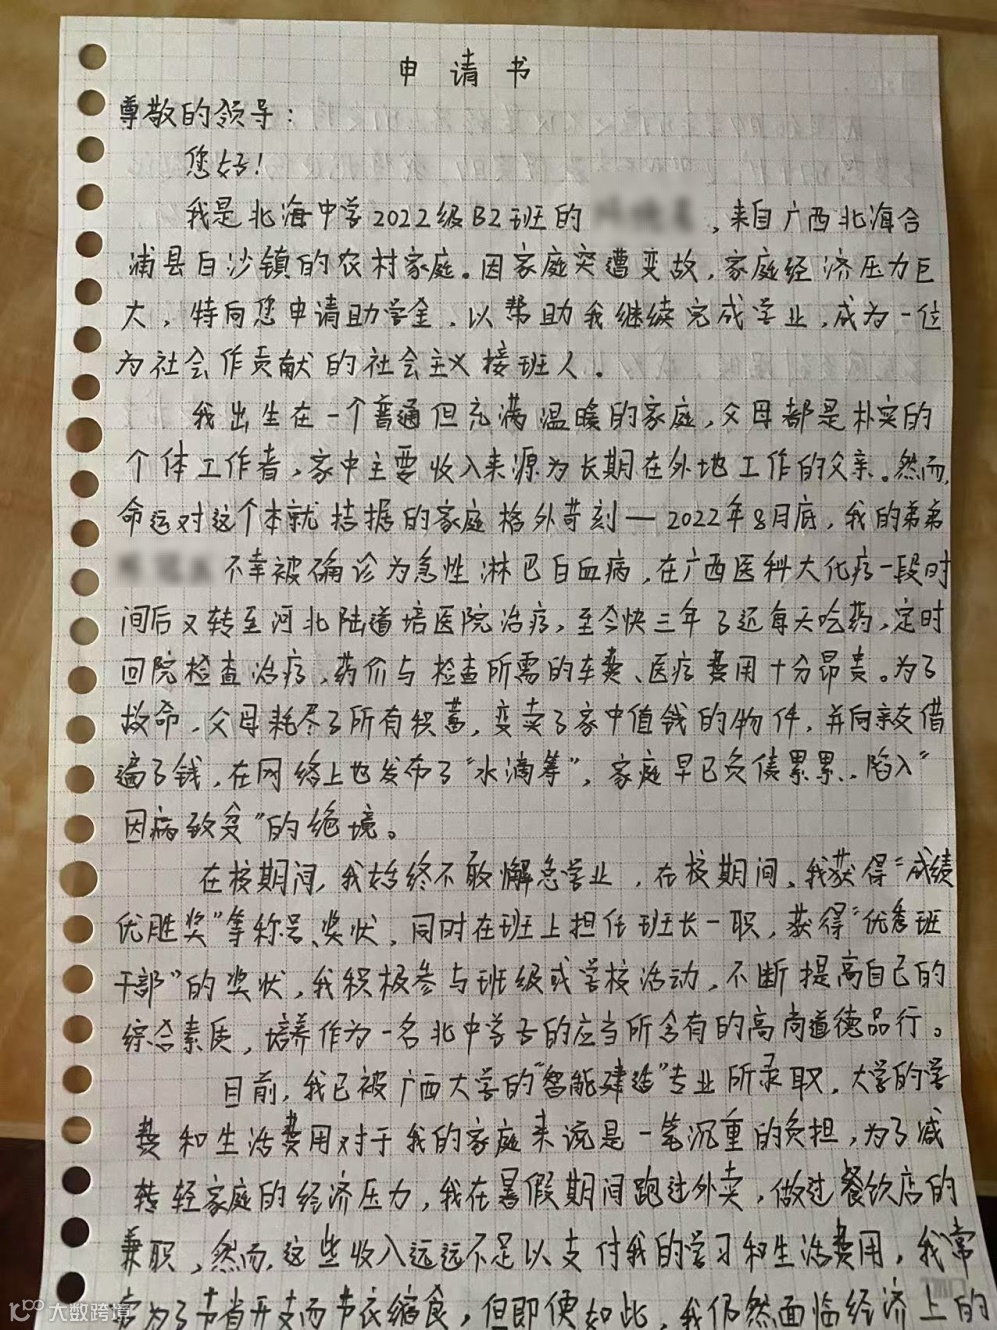 申请书
尊敬的领导：
您好！
我是北海中学2022级B2班的 ，来自广西北海合
浦县白沙镇的农村家庭。因家庭突遭变故，家庭经济压力巨
大，特向您申请助学金，以帮助我继续完成学业，成为一位
为社会作贡献的社会主义接班人。
我出生在一个普通但充满温暖的家庭，父母都是朴实的
个体工作者，家中主要收入来源为长期在外地工作的父亲。然而，
命运对这个本就拮据的家庭格外苛刻—2022年8月底，我的弟弟
不幸被确诊为急性淋巴白血病，在广西医科大化疗一段时
间后又转至河北陆道培医院治疗，至今快三年了还每天吃药，定时
回院检查治疗，药价与检查所需的车费、医疗费用十分昂贵。为了
救命，父母耗尽了所有积蓄，变卖了家中值钱的物件，并向亲友借
遍了钱，在网络上也发布了“水滴筹”，家庭早已负债累累，陷入“
因病致贫”的绝境。
在校期间，我始终不敢懈怠学业，在校期间，我获得“成绩
优胜奖”等称号、奖状，同时在班上担任班长一职，获得“优秀班
干部”的奖状，我积极参与班级或学校活动，不断提高自己的
综合素质，培养作为一名北中学子的应当所含有的高尚道德品行。
目前，我已被广西大学的“智能建造”专业所录取，大学的学
费和生活费用对于我的家庭来说是一笔沉重的负担，为了减
轻家庭的经济压力，我在暑假期间跑过外卖，做过餐饮店的
兼职，然而，这些收入远远不足以支付我的学习和生活费用，我常
为了节省开支而节衣缩食，但即便如此，我仍然面临经济上的
大数跨境